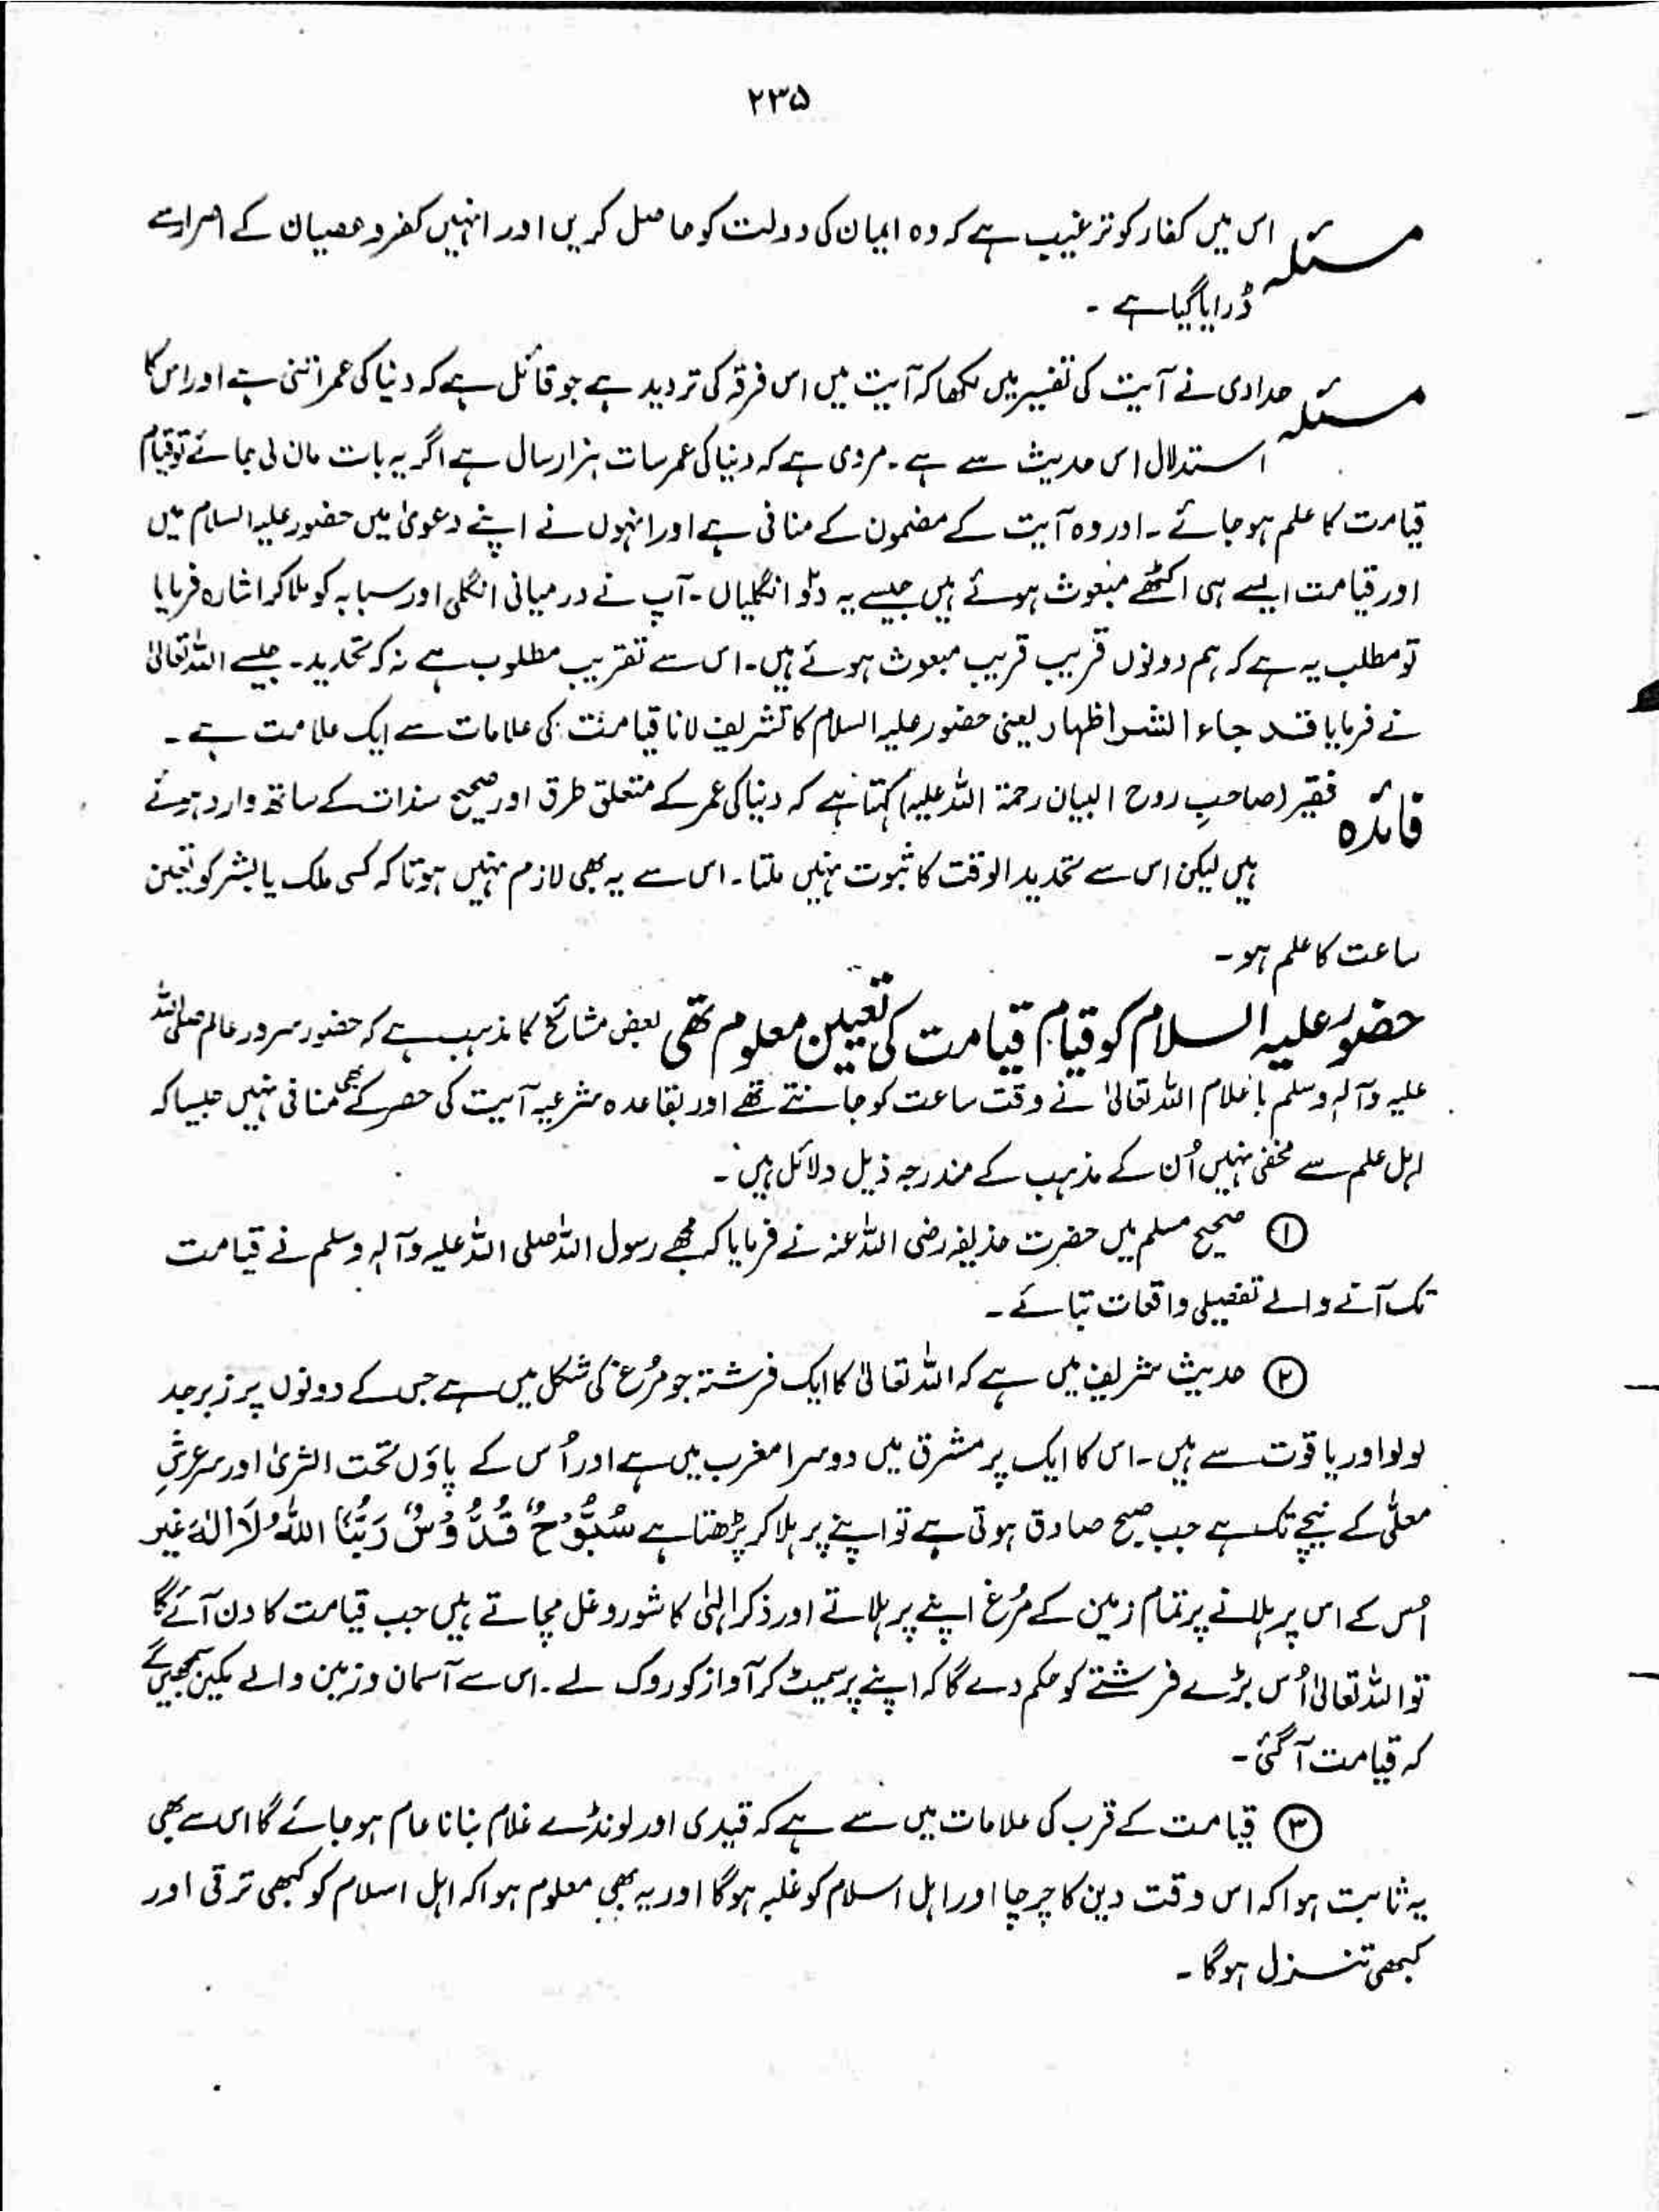 ۲۳۵
مسئلہ اس میں کفار کو ترغیب ہے کہ وہ ایمان کی دولت کو حاصل کریں اور انہیں کفر و عصیان کے اصرار سے
ڈرایا گیا ہے ۔
مسئلہ حدادی نے آیت کی تفسیر میں لکھا کہ آیت میں اس فرقہ کی تردید ہے جو قائل ہے کہ دنیا کی عمر اتنی ہے اور اس کا
استدلال اس حدیث سے ہے ۔ مروی ہے کہ دنیا کی عمر سات ہزار سال ہے اگر یہ بات مان لی جائے تو قیام
قیامت کا علم ہو جائے ۔ اور وہ آیت کے مضمون کے منافی ہے اور انہوں نے اپنے دعویٰ میں حضور علیہ السلام میں
اور قیامت ایسے ہی اکٹھے مبعوث ہوئے ہیں جیسے یہ دو انگلیاں ۔ آپ نے درمیانی انگلی اور سبابہ کو ملا کر اشارہ فرمایا
تو مطلب یہ ہے کہ ہم دونوں قریب قریب مبعوث ہوئے ہیں ۔ اس سے تقریب مطلوب ہے نہ کہ تحدید ۔ جیسے اللہ تعالیٰ
نے فرمایا قد جاء اشراظہا یعنی حضور علیہ السلام کا تشریف لانا قیامت کی علامات سے ایک علامت ہے ۔
فائدہ فقیر (صاحبِ روح البیان رحمۃ اللہ علیہ) کہتا ہے کہ دنیا کی عمر کے متعلق طرق اور صحیح سندات کے ساتھ وارد ہوئے
ہیں لیکن اس سے تحدید الوقت کا ثبوت نہیں ملتا ۔ اس سے یہ بھی لازم نہیں ہوتا کہ کسی ملک یا بشر کو تعین
ساعت کا علم ہو ۔
حضور علیہ السلام کو قیام قیامت کی تعیین معلوم تھی بعض مشائخ کا مذہب ہے کہ حضور سرور عالم صلی اللہ
علیہ وآلہٖ وسلم باعلام اللہ تعالیٰ نے وقت ساعت کو جانتے تھے اور بقاعدہ شرعیہ آیت کی حصر کے بھی منافی نہیں جیسا کہ
اہل علم سے مخفی نہیں اُن کے مذہب کے مندرجہ ذیل دلائل ہیں ۔
① صحیح مسلم میں حضرت حذیفہ رضی اللہ عنہ نے فرمایا کہ مجھے رسول اللہ صلی اللہ علیہ وآلہٖ وسلم نے قیامت
تک آنے والے تفصیلی واقعات بتائے ۔
② حدیث شریف میں ہے کہ اللہ تعالیٰ کا ایک فرشتہ جو مُرغ کی شکل میں ہے جس کے دونوں پر زبرجد
لولو اور یاقوت سے ہیں ۔ اس کا ایک پر مشرق میں دوسرا مغرب میں ہے اور اُس کے پاؤں تحت الثریٰ اور سر عرشِ
معلّٰی کے نیچے تک ہے جب صبح صادق ہوتی ہے تو اپنے پر ہلا کر پڑھتا ہے سُبُّوْحٌ قُدُّوْسٌ رَبُّنَا اللّٰہُ لَا اِلٰہَ غیر
اُس کے اس پر ہلانے پر تمام زمین کے مُرغ اپنے پر ہلاتے اور ذکر الہٰی کا شور و غل مچاتے ہیں جب قیامت کا دن آئے گا
تو اللہ تعالیٰ اُس بڑے فرشتے کو حکم دے گا کہ اپنے پر سمیٹ کر آواز کو روک لے ۔ اس سے آسمان و زمین والے یکین سمجھیں گے
کہ قیامت آگئی ۔
③ قیامت کے قرب کی علامات میں سے ہے کہ قیدی اور لونڈے غلام بنانا عام ہو جائے گا اس سے بھی
یہ ثابت ہوا کہ اس وقت دین کا چرچا اور اہل اسلام کو غلبہ ہوگا اور یہ بھی معلوم ہوا کہ اہل اسلام کو کبھی ترقی اور
کبھی تنزل ہوگا ۔